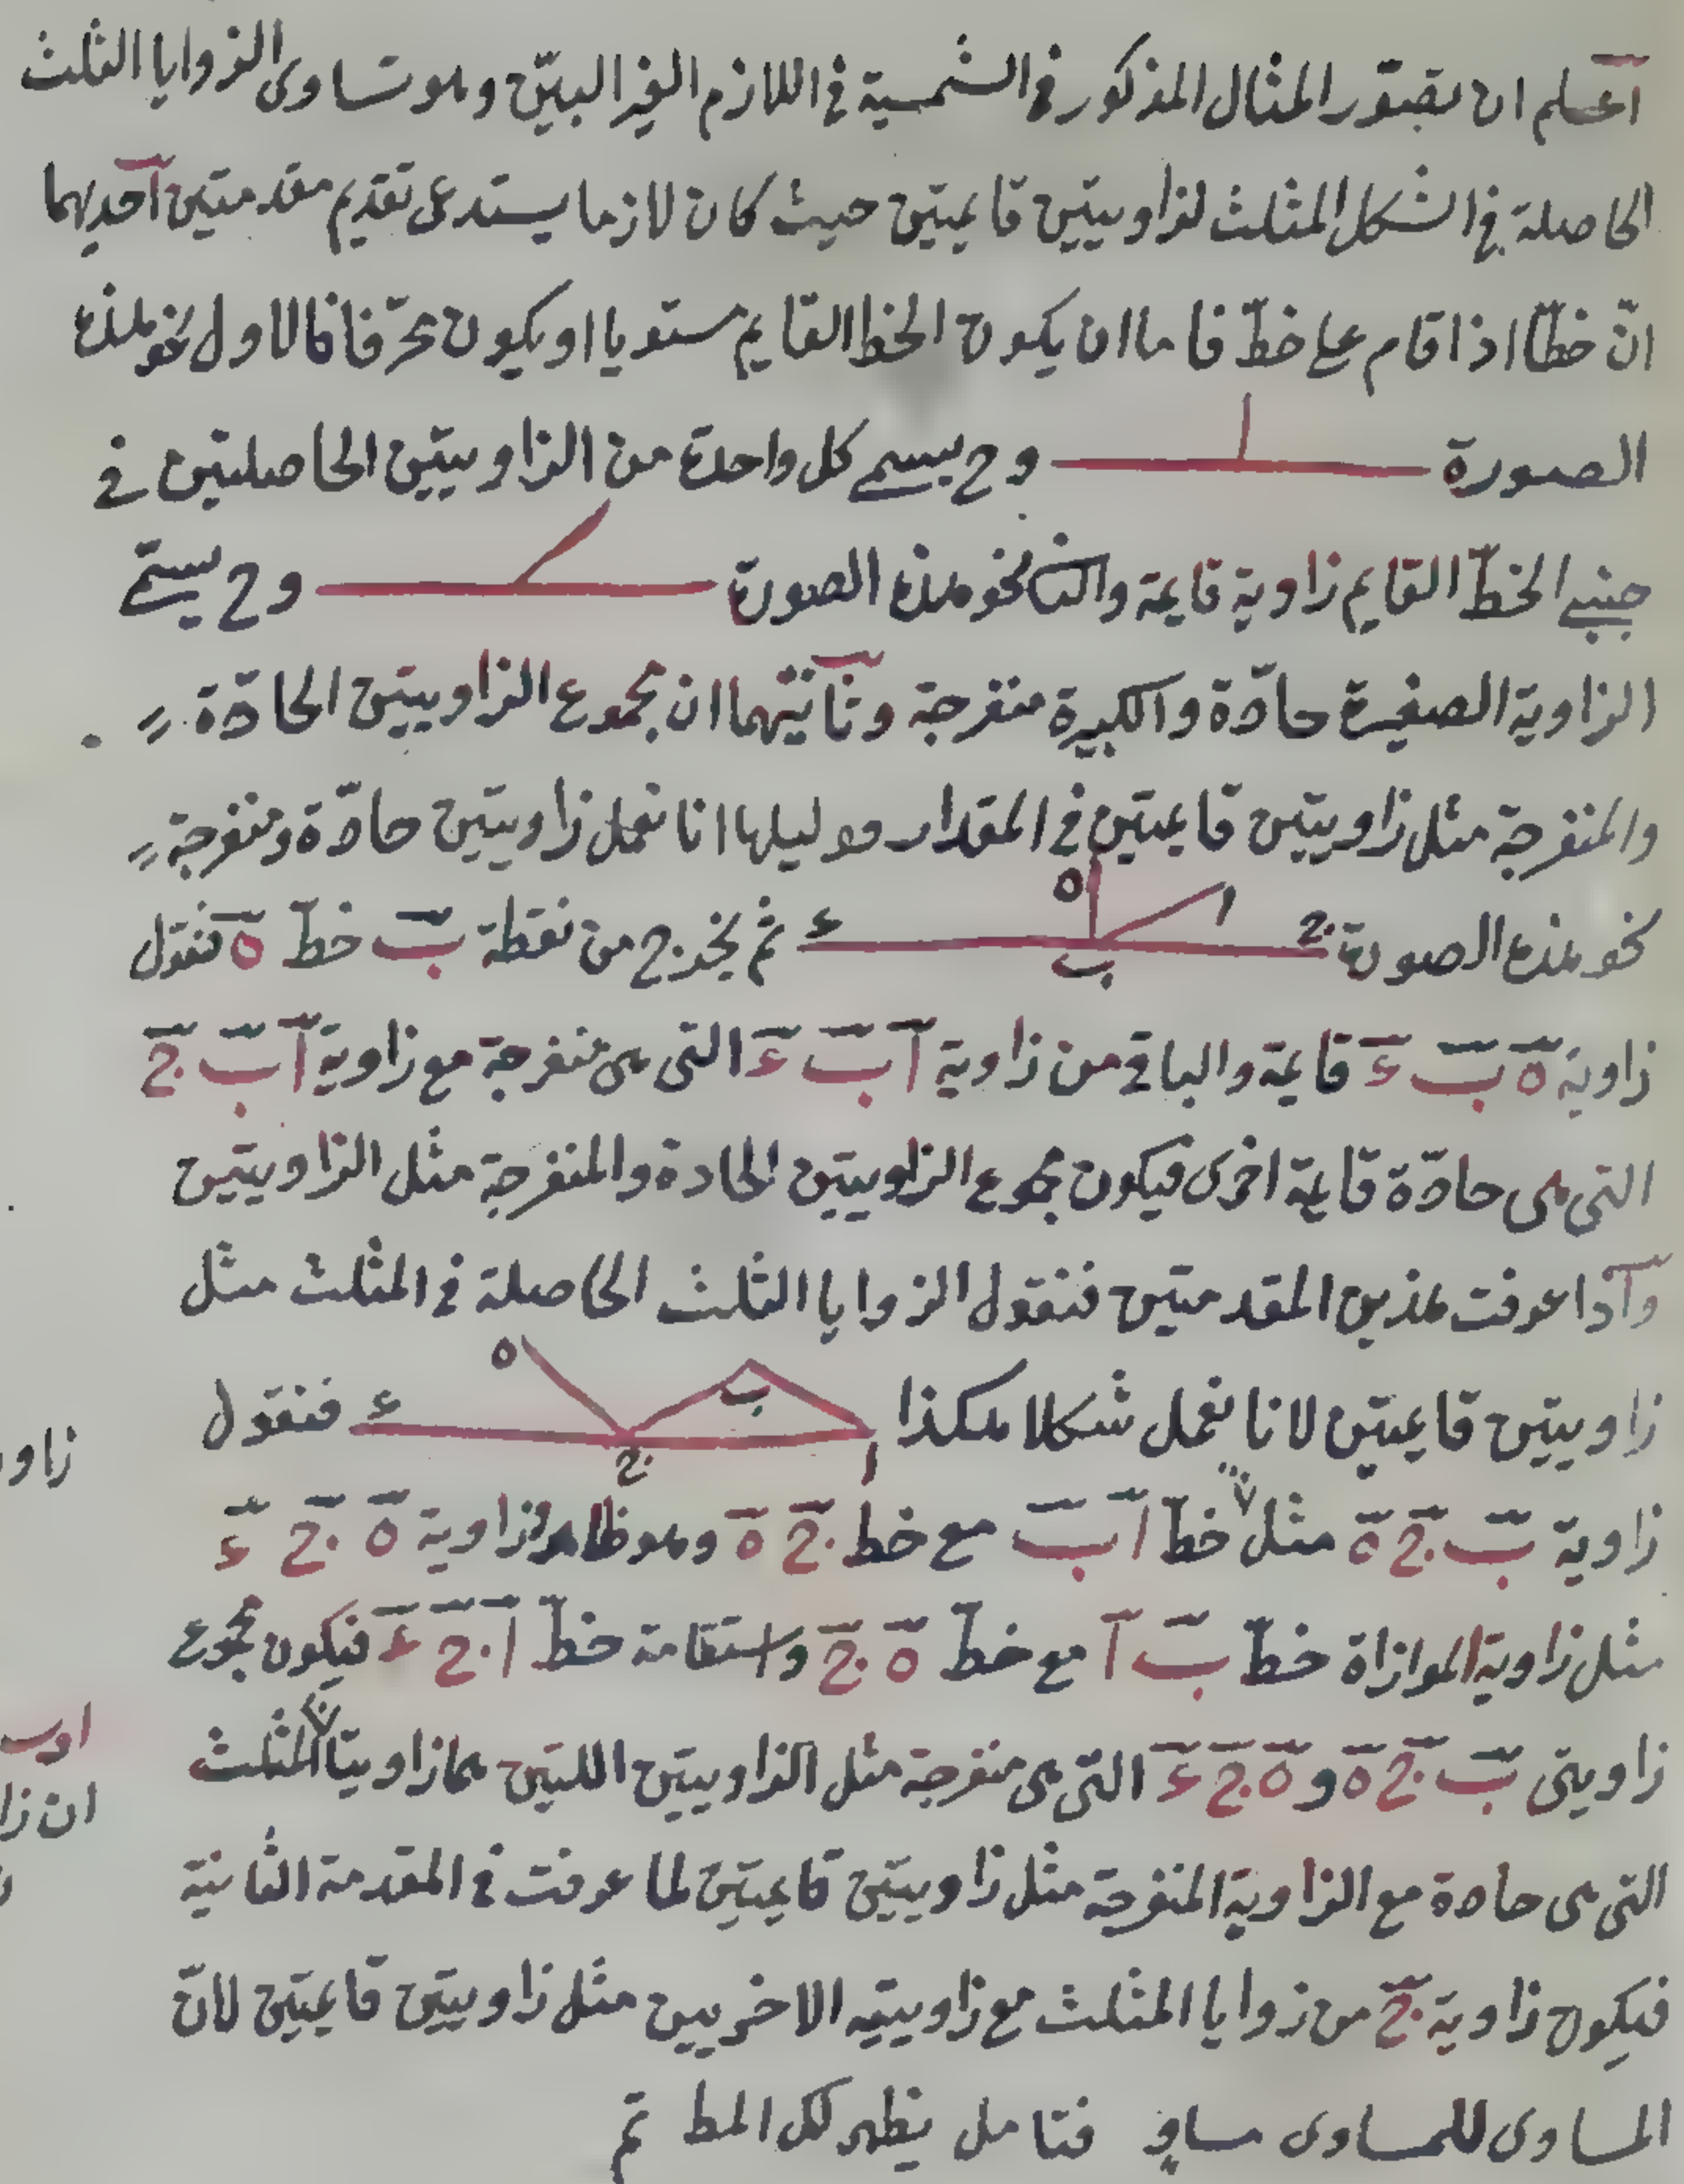 اعلم ان تصور المثال المذكور فى الشمسية فى اللازم الغير البين وهو تساوى الزوايا الثلث
الحاصلة فى الشكل المثلث لزاويتين قايمتين حيث كان لازما يستدعى تقديم مقدمتين احديهما
انّ خطّا اذا قام على خطّ فاما ان يكون الخط القايم مستويا او يكون محرّفا فالاول نحو هذه
الصورة وح يسمى كل واحدة من الزاويتين الحاصلتين فى
جنبى الخطّ القايم زاوية قايمة والثانى نحو هذه الصورة وح يسمّى
الزاوية الصغيرة حادّة والكبيرة منفرجة وثانيتهما ان مجموع الزاويتين الحادّة
والمنفرجة مثل زاويتين قايمتين فى المقدار ودليلها انا نعمل زاويتين حادّة ومنفرجة
نحو هذه الصورة ج ا ه ب ء ثم يخرج من نقطة ب خطّ ه فنقول
زاوية ه ب ء قايمة والباقى من زاوية ا ب ء التى هى منفرجة مع زاوية ا ب ج
التى هى حادّة قايمة اخرى فيكون مجموع الزاويتين الحادة والمنفرجة مثل الزاويتين
واذا عرفت هذين المقدمتين فنقول الزوايا الثلث الحاصلة فى المثلث مثل
زاويتين قايمتين لانا نعمل شكلا هكذا ا ب ج ه ء فنقول
زاوية ب ج ه مثل خطّ ا ب مع خط ج ه وهو ظاهر وزاوية ه ج ء
مثل زاوية الموازاة خطّ ب ا مع خطّ ه ج واستقامة خطّ ا ج ء فيكون مجموع
زاويتى ب ج ه و ه ج ء التى هى منفرجة مثل الزاويتين اللتين هما زاويتا المثلث
التى هى حادة مع الزاوية المنفرجة مثل زاويتين قايمتين لما عرفت فى المقدمة الثانية
فيكون زاوية ج من زوايا المثلث مع زاويتيه الاخريين مثل زاويتين قايمتين لانّ
المساوى للمساوى مساوٍ فتامل يظهر لك المط تم
زاو
ان زا